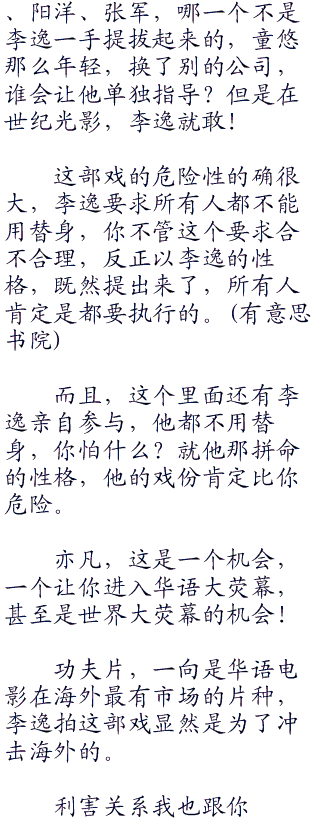 、阳洋、张军，哪一个不是
李逸一手提拔起来的，童悠
那么年轻，换了别的公司，
谁会让他单独指导？但是在
世纪光影，李逸就敢！
这部戏的危险性的确很
大，李逸要求所有人都不能
用替身，你不管这个要求合
不合理，反正以李逸的性
格，既然提出来了，所有人
肯定是都要执行的。(有意思
书院)
而且，这个里面还有李
逸亲自参与，他都不用替
身，你怕什么？就他那拼命
的性格，他的戏份肯定比你
危险。
亦凡，这是一个机会，
一个让你进入华语大荧幕，
甚至是世界大荧幕的机会！
功夫片，一向是华语电
影在海外最有市场的片种，
李逸拍这部戏显然是为了冲
击海外的。
利害关系我也跟你